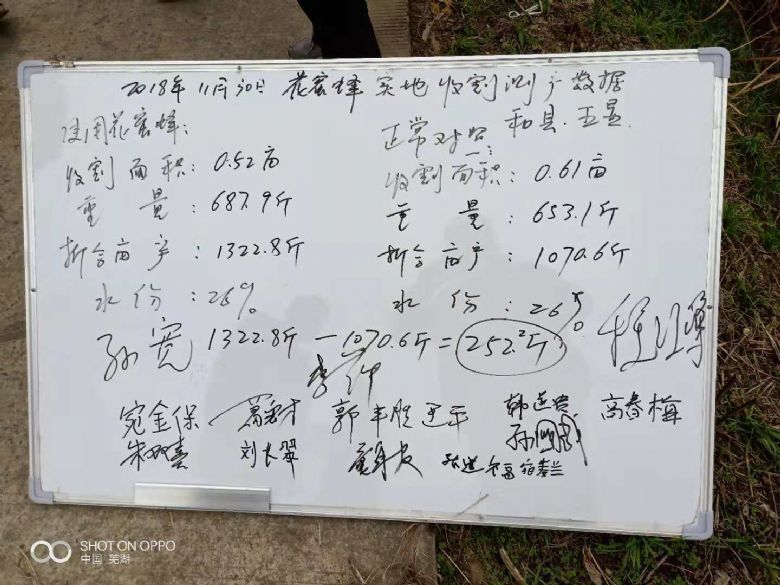 2018年11月30日 花蜜蜂实地收割测产数据
和县.五星
使用花蜜蜂:
收割面积: 0.52亩
重量: 687.9斤
折合亩产: 1322.8斤
水份: 26%
正常对照:
收割面积: 0.61亩
重量: 653.1斤
折合亩产: 1070.6斤
水份: 26%
1322.8斤 - 1070.6斤 = 252.2斤
孙宽
宛金保 郭丰胜 高春梅
刘长翠
SHOT ON OPPO
中国·芜湖